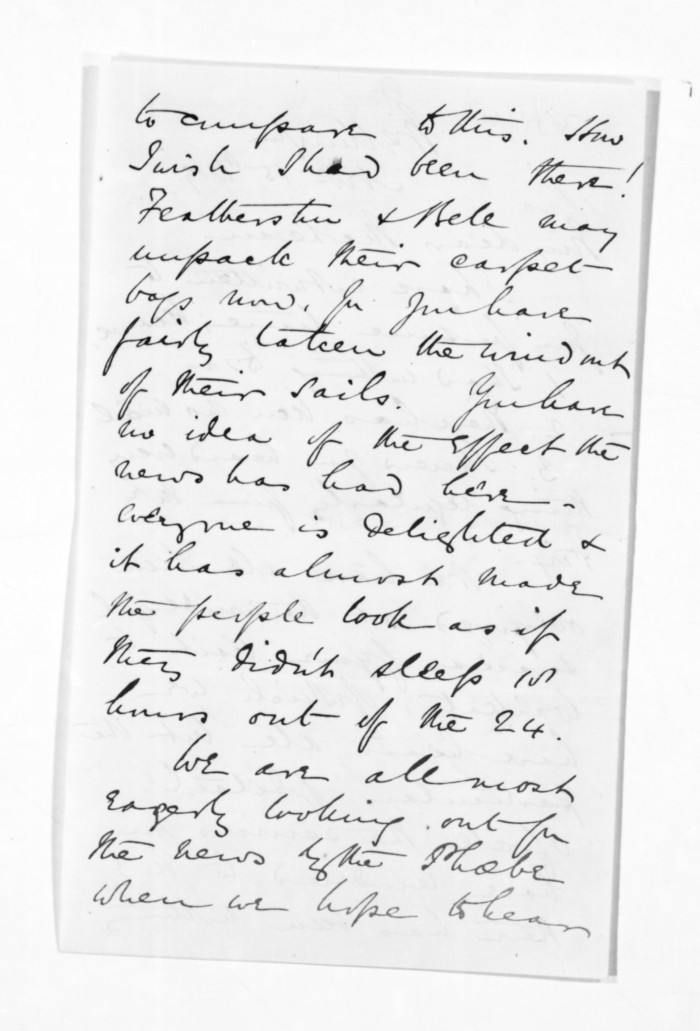 to compare to this. How
I wish I had been there!
Featherston & Bell may
unpack their carpet
bags now, for you have
fairly taken the wind out
of their sails. You have
no idea of the effect the
news has had here -
everyone is delighted &
it has almost made
the people look as if
they didn't sleep 10
hours out of the 24.
We are all most
eagerly looking out for
the news by the Phœbe
when we hope to hear